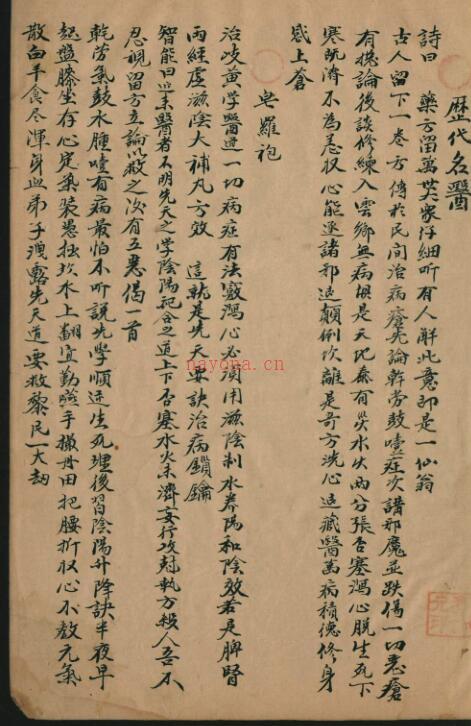 歷代名醫
詩曰 藥方留萬世眾仔細听有人解此意即是一仙翁
古人留下一卷方傳於民間治病瘡先論幹勞鼓噎症次講邪魔並跌傷一切惡瘡
有揔論後談修練入雲鄉無病揔是天地泰有災水火兩分張否塞瀉心脫生死下
寒既濟不為恙収心能逐諸邪遠顛倒坎離是奇方洗心退藏醫萬病積德修身
感上蒼
皂羅袍
治岐黃學醫道一切病症有法竅瀉心必須用滋陰制水養陽和陰效若是脾腎
兩經虛滋陰大補丸方效 這就是先天要訣治病鎖鑰
智能曰業醫者不明先天之學陰陽配合之道上下否塞水火未濟妄行攻尅執方殺人吾不
忍視留方立論以救之次有五恙偈一首
乾勞氣鼓水腫噎有病最怕不听說先學順逆生死理後習陰陽升降訣半夜早
起盤膝坐存心定氣裝愚拙坎水上翻宜勤嚥手擦丹田把腰折収心不散元氣
散白羊食尽渾身血弟子洩露先天道要救黎民一大劫
nayona.cn